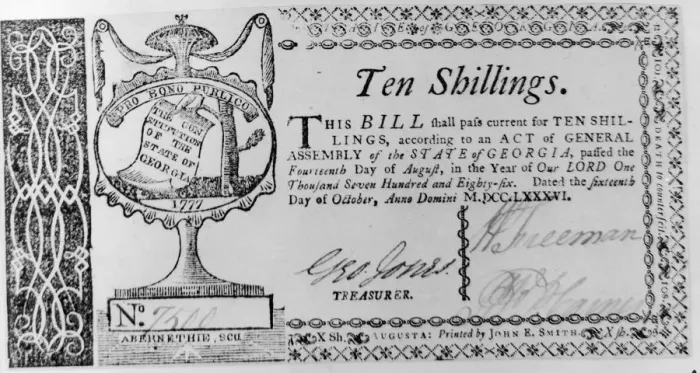 STATE of GEORGIA
PRO BONO PUBLICO
THE CON
STITUTION
OF THE
STATE OF
GEORGIA
1777
No. 7500
ABERNETHIE, SCU.
Ten Shillings.
THIS BILL ſhall paſs current for TEN SHIL-
LINGS, according to an ACT of GENERAL
ASSEMBLY of the STATE of GEORGIA, paſſed the
Fourteenth Day of Auguſt, in the Year of Our LORD One
Thouſand Seven Hundred and Eighty-ſix. Dated the ſixteenth
Day of October, Anno Domini M.DCC.LXXXVI.
Geo Jones.
TREASURER.
Freeman
X Sh. AUGUSTA: Printed by JOHN E. SMITH. X ſh.
DEATH to counterfeit